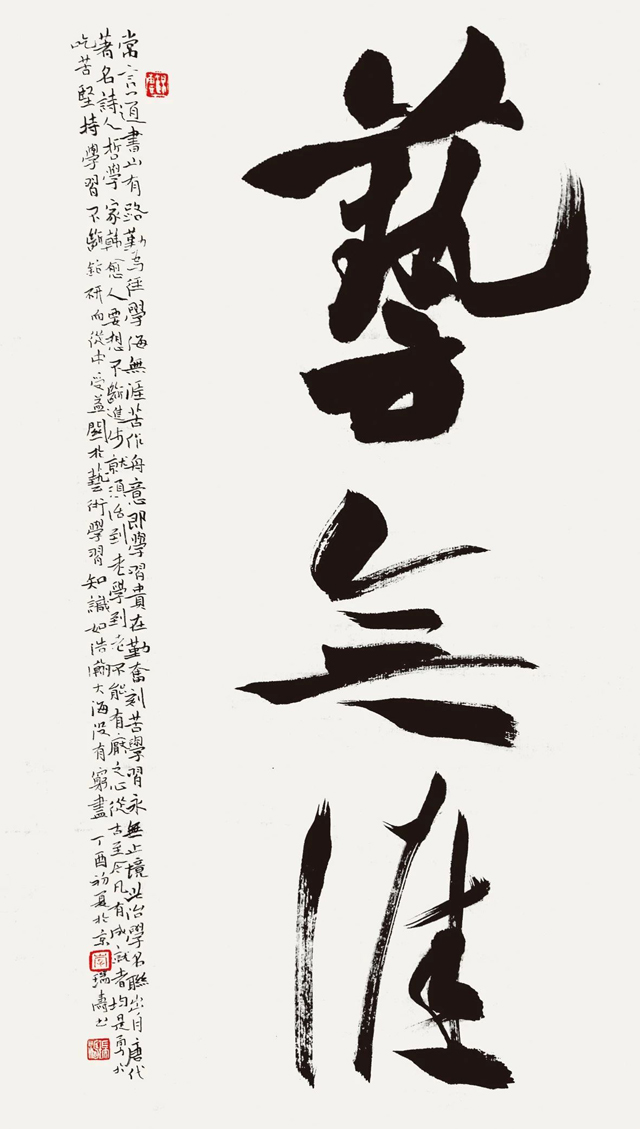 藝無涯
常言道書山有路勤為徑學海無涯苦作舟意即學習貴在勤奮刻苦學習永無止境此治學名聯出自唐代
著名詩人哲學家韓愈人要想不斷進步就須活到老學到老不能有厭之心從古至今凡有成就者均是勇於
吃苦堅持學習不斷鉆研而從中受益關於藝術學習知識如浩瀚大海沒有窮盡丁酉初夏於京瑞濤書